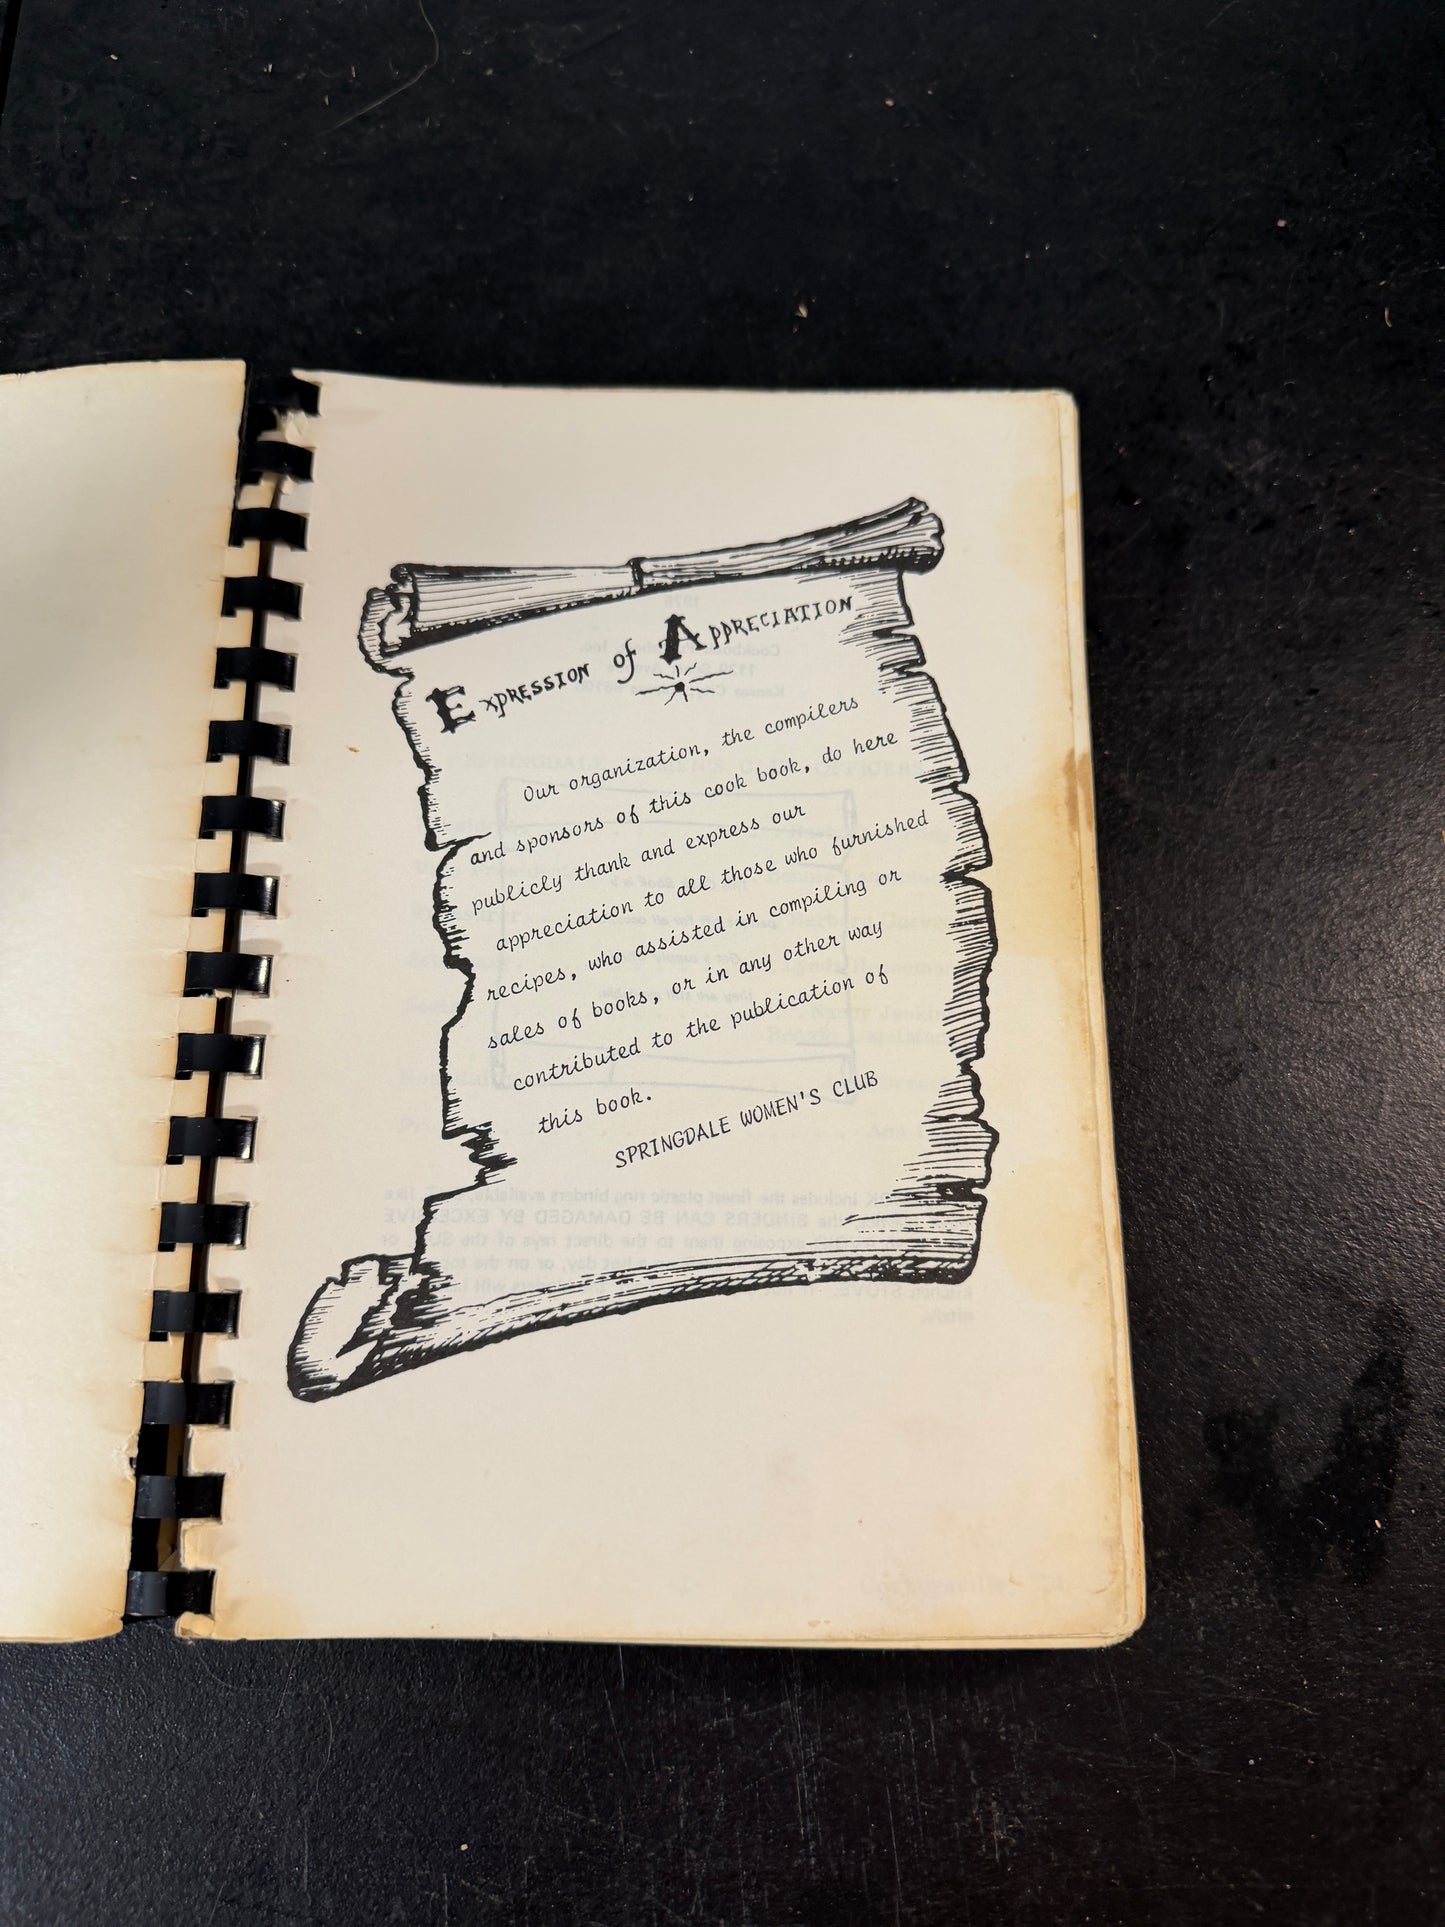 Expression of Appreciation
Our organization, the compilers
and sponsors of this cook book, do here
publicly thank and express our
appreciation to all those who furnished
recipes, who assisted in compiling or
sales of books, or in any other way
contributed to the publication of
this book.
SPRINGDALE WOMEN'S CLUB